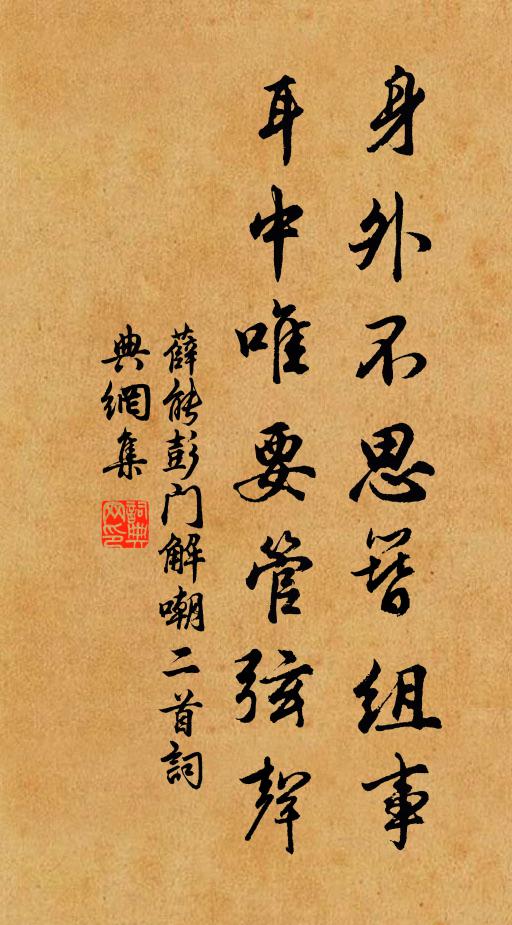 身外不思簪組事
耳中唯要管弦聲
薛能彭门解嘲二首詞
典網集
詞典
网印